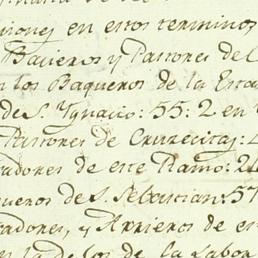 ciones en estos terminos
Baqueros y Pastores de C
los Baqueros de la Esta
de S. Ygnacio: 55: 2 en
Pastores de Cruzecitas:
adores de este Ramo: 2
queros de S. Sebastian: 57
adores, y Arrieros de es
de los de la Labor